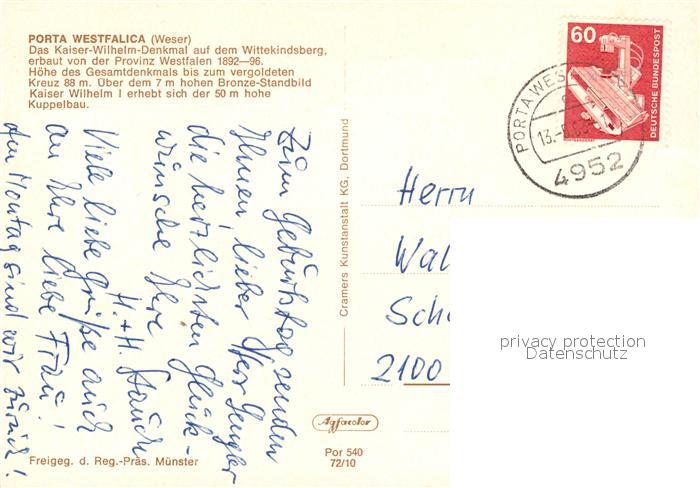 PORTA WESTFALICA (Weser)
Das Kaiser-Wilhelm-Denkmal auf dem Wittekindsberg,
erbaut von der Provinz Westfalen 1892—96.
Höhe des Gesamtdenkmals bis zum vergoldeten
Kreuz 88 m. Über dem 7 m hohen Bronze-Standbild
Kaiser Wilhelm I erhebt sich der 50 m hohe
Kuppelbau.
Zum Geburtstag senden
Ihnen, lieber Herr
die herzlichsten Glück-
wünsche Ihre
H. + H.
Viele liebe Grüße auch
an Ihre liebe Frau!
Am Montag sind wir zurück!
Cramers Kunstanstalt KG, Dortmund
60
DEUTSCHE BUNDESPOST
PORTA WES
13.-
4952
Herrn
Wal
Sch
2100
privacy protection
Datenschutz
Agfacolor
Freigeg. d. Reg.-Präs. Münster
Por 540
72/10